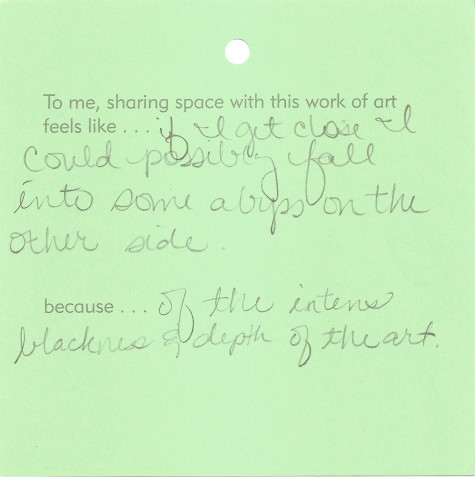 To me, sharing space with this work of art
feels like . . . if I get close I
could possibly fall
into some abyss on the
other side.
because . . . of the intens
blackness & depth of the art.